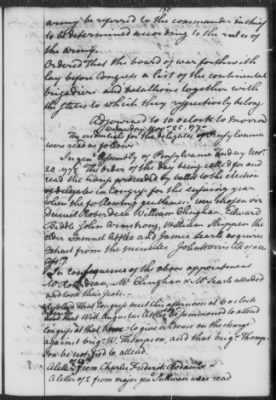 army be referred to the commander in chief
to be determined according to the rules of
the army.
Ordered That the board of war forthwith
lay before Congress a list of the continental
brigadiers and batallions together with
the states to which they respectively belong
Adjourned to 10 o'Clock to Morrow
Wednesday Nov. 25. 1778
The credentials for the delegates of Pennsylvania
were read as follows
In gen: Assembly of Pennsylvania Friday Nov.
20. 1778. The orders of the day being called for and
read the house proceeded by ballot to the election
of delegates in Congress for the ensuing year
when the following gentlemen were chosen viz
Daniel Roberdeau William Clingham, Edward
Biddle John Armstrong, William Shippen the
elder Samuel Atlee and James Searle esquires
Extract from the minutes John Morris
In consequence of the above appointment
Mr Roberdeau, Mr Clingham & Mr Searle attended
and took their seats.
that Congress meet this afternoon at 6 o'clock
and that Will Augustus Atlee be summoned to attend
Congress at that to give evidence on the charge
against brig: W. Thompson, and that brig: Thompson
be notified to attend.
A letter from Charles Frederick Bedaulx
A letter of 5 from major gen Sullivan were read